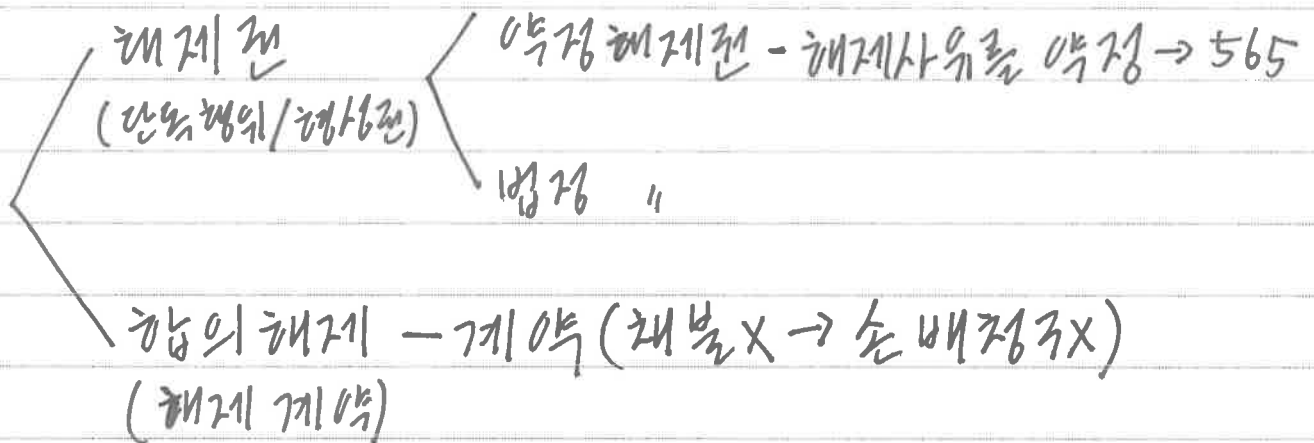 해제권
(단독행위/형성권)
약정해제권 - 해제사유를 약정 → 565
법정 〃
합의해제 - 계약 (채불X → 손배청구X)
(해제계약)